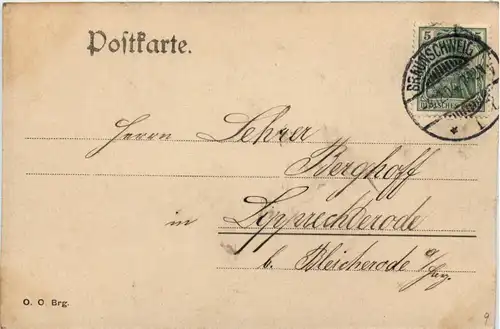 Postkarte.
5 5
BRAUNSCHWEIG
Herrn Lehrer
Berghoff
in Lipprechterode
b. Bleicherode a/Harz.
O. O. Brg.
9